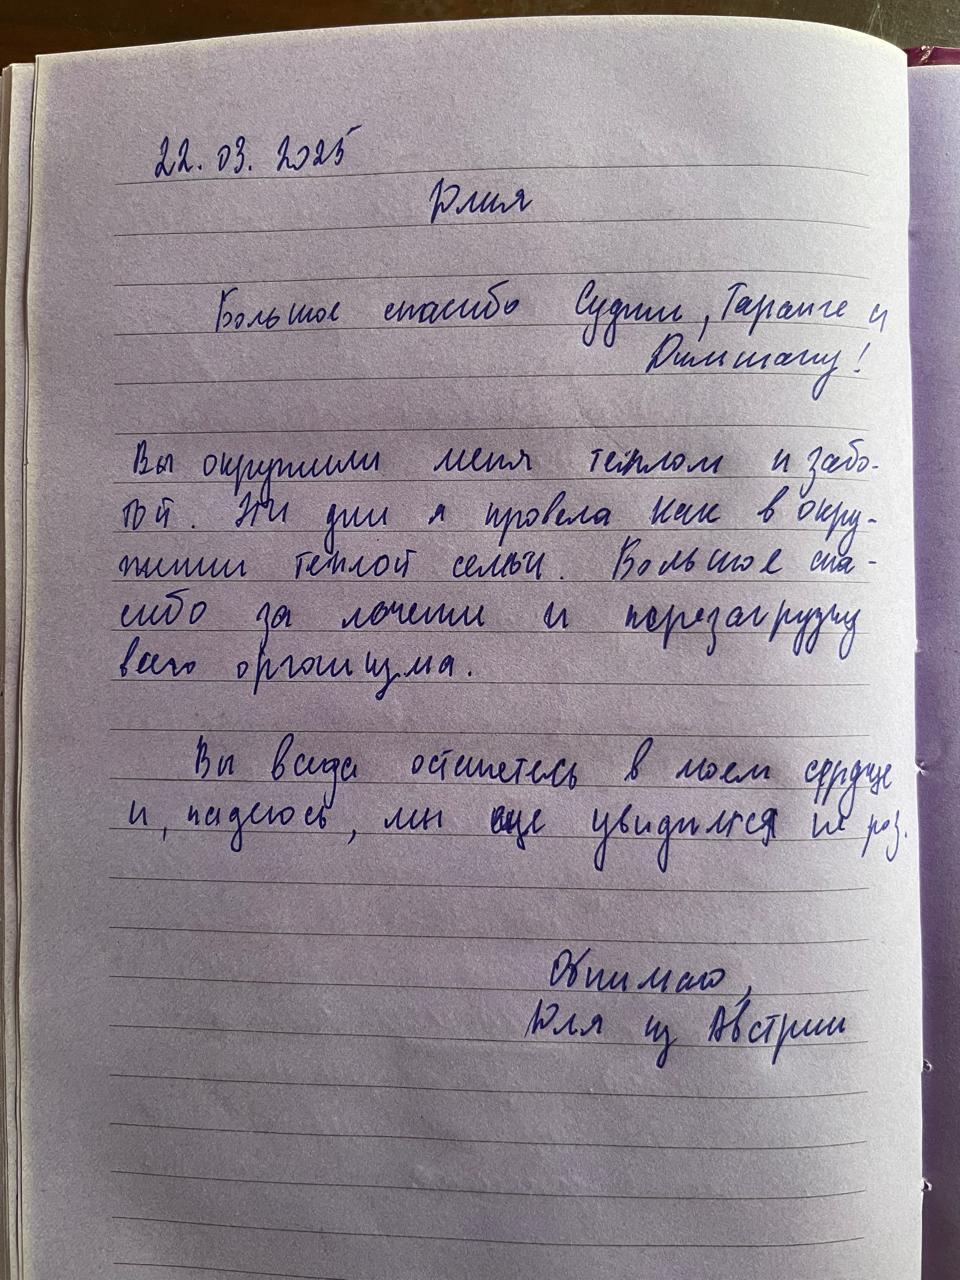 22.03.2025
Юлия
Большое спасибо Судии, Таранге и
Дилшану!
Вы окружили меня теплом и забо-
той. Эти дни я провела как в окру-
жении теплой семьи. Большое спа-
сибо за лечение и перезагрузку
всего организма.
Вы всегда останетесь в моем сердце
и, надеюсь, мы еще увидимся не раз.
Обнимаю,
Юля из Австрии